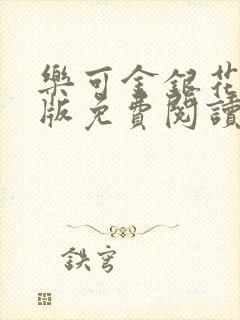 樂可金銀花
版免費閱讀
鉄穹